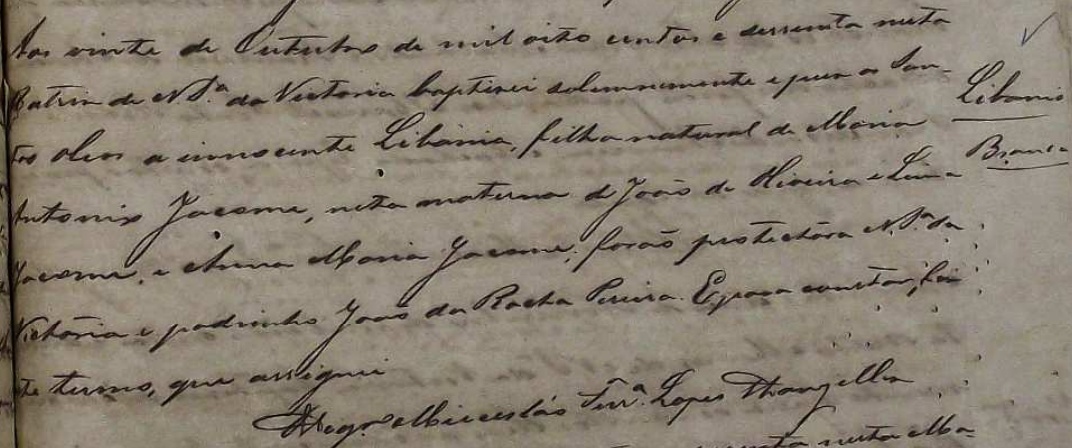 Aos vinte de Outubro de mil oito centos e sessenta nesta
Matriz de N. S.ª da Victoria baptizei solemnemente e puz os San-
tos oleos a innocente Libania, filha natural de Maria
Libania
Branca
Antonia Jacome, neta materna de João de Oliveira e Lima
Jacome, e Anna Maria Jacome, forão protectora N. S.ª da
Victória e padrinho João da Rocha Pereira. E para constar, fiz
te termo, que assignei
Lopes
nesta Ma